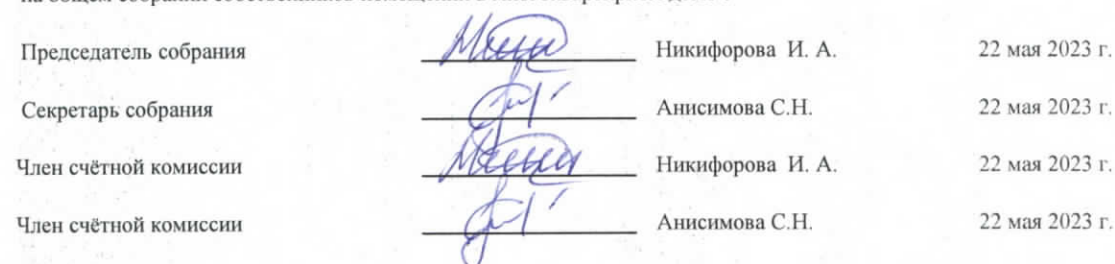 Председатель собрания Никифорова И. А. 22 мая 2023 г.
Секретарь собрания Анисимова С.Н. 22 мая 2023 г.
Член счётной комиссии Никифорова И. А. 22 мая 2023 г.
Член счётной комиссии Анисимова С.Н. 22 мая 2023 г.